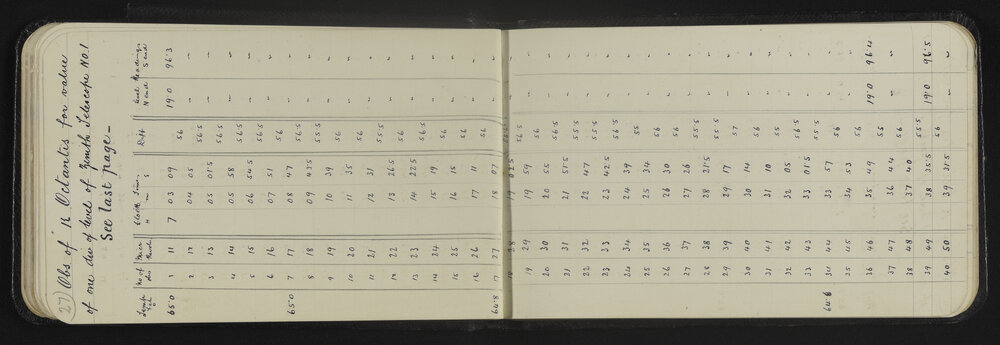 27) Obs. of K Octantis for value
of one div of level of Zenith Telescope No. 1
See last page –
Temp Tel No. of obs Micr Readg Clock Time H m s Diff Level Readings N end S end
65.0 1 11 7 03 09 56 19.0 96.3
2 12 04 05 56.5 " "
3 13 05 01.5 56.5 " "
4 14 05 58 56.5 " "
5 15 06 54.5 56.5 " "
6 16 07 51 56 " "
65.0 7 17 08 47 56.5 " "
8 18 09 43.5 55.5 " "
9 19 10 39 56 " "
10 20 11 35 56 " "
11 21 12 31 55.5 " "
12 22 13 26.5 56 " "
13 23 14 22.5 56.5 " "
14 24 15 19 56 " "
15 25 16 15 56 " "
16 26 17 11 56 " "
64.8 17 27 18 07 " "
18 28 19 02.5 56.5 " "
19 29 19 59 56 " "
20 30 20 55 56.5 " "
21 31 21 51.5 55.5 " "
22 32 22 47 55.5 " "
23 33 23 42.5 56.5 " "
24 34 24 39 55 " "
25 35 25 34 56 " "
26 36 26 30 56 " "
27 37 27 26 55.5 " "
28 38 28 21.5 55.5 " "
29 39 29 17 57 " "
30 40 30 14 56 " "
31 41 31 10 55 " "
32 42 32 05 56.5 " "
33 43 33 01.5 55.5 " "
64.6 34 44 33 57 56 " "
35 45 34 53 56 " "
36 46 35 49 55 19.0 96.4
37 47 36 44 56 " "
38 48 37 40 55.5
39 49 38 35.5 56 19.0 96.5
40 50 39 31.5 " "